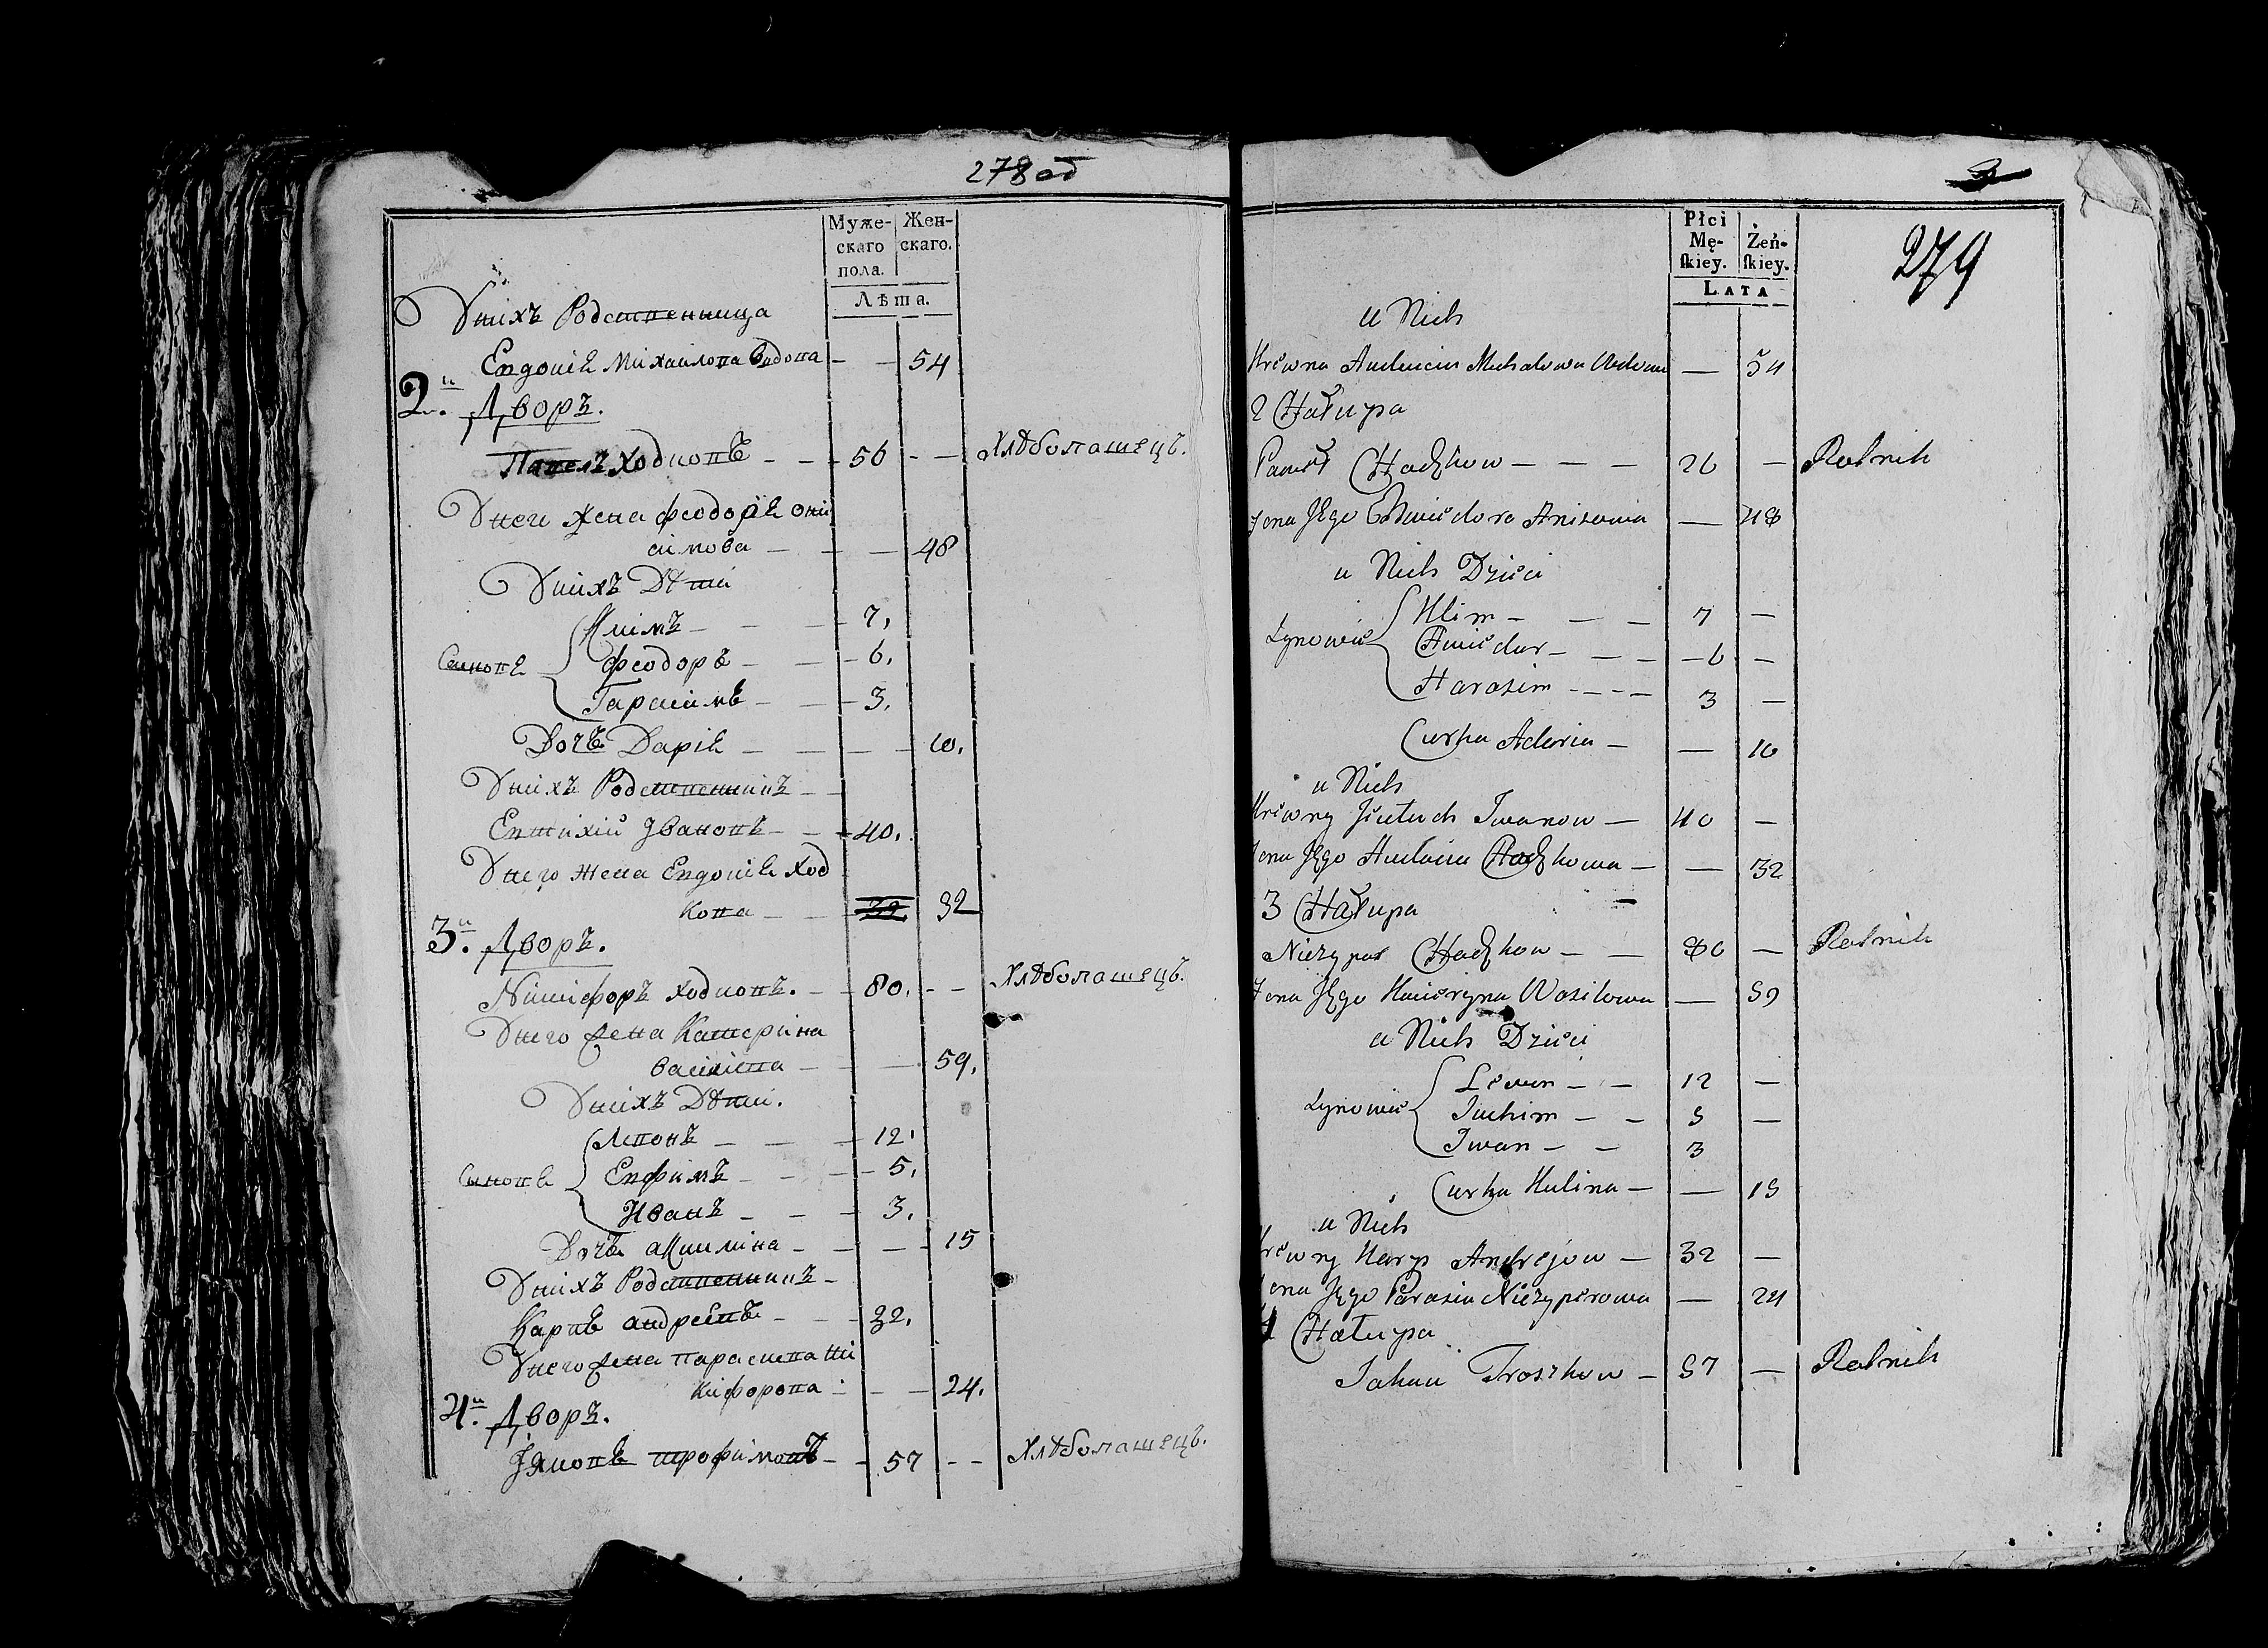 278 об
Муже-
скаго
пола.
Жен-
скаго.
Лѣта.
У нихъ Родственница
Евдокіѧ Михайлова вдова — — 54
2.й Дворъ.
Павелъ Ходковъ — — 56 — — Хлѣбопашецъ.
У него жена Феодоріѧ Они
симова — — — 48
У нихъ Дѣти
Климъ — — — 7,
Сыновѧ
Феодоръ — — — 6.
Гарасимъ — — 3.
Дочь Даріѧ — — — — 10.
У нихъ Родственникъ — —
Евтихій Івановъ — — 40.
У него жена Евдокіѧ Ход
кова — — 32 32
3.й Дворъ.
Никифоръ Ходковъ. — — 80. — — Хлѣбопашецъ.
У него жена Катерина
василіева — — — 59.
У нихъ Дѣти.
Левонъ — — — 12.
Сыновѧ
Евфимъ — — — 5.
Иванъ — — — 3.
Дочь акилина — — — — 15
У нихъ Родственникъ —
Карпъ андреевъ — — — 32.
У него жена Параскева Ни
кифорова — — — 24.
4.й Дворъ.
Яковъ трофимовъ — — 57 — — Хлѣбопашецъ.
279
Płci
Mę-
ſkiey.
Żeń-
ſkiey.
LATA
u Nich
Krewna Audocia Michałowa Wdowa — 54
2 Hałupa
Paweł Chadkow — — — 26 — Rolnik
Żona Jego Chwiedora Anisowa — 48
u Nich Dzieci
Klim — — — 7 —
Synowie
Chwiedor — — — 6 —
Harasim — — — 3 —
Curka Adaria — — 10
u Nich
Krewny Jeutuch Iwanow — 40 —
Żona Jego Audocia Chadkowa — — 32
3 Chałupa
Niczypar Chadkow — — 80 — Rolnik
Żona Jego Kacieryna Wasilowa — 59
u Nich Dzieci
Lewon — — 12 —
Synowie
Juchim — — 5 —
Iwan — — 3
Curka Kulina — — 15
u Nich
Krewny Karp Andrejow — 32 —
Żona Jego Parasia Niczyperowa — 24
4 Chałupa
Jakau Troszkow — 57 — Rolnik